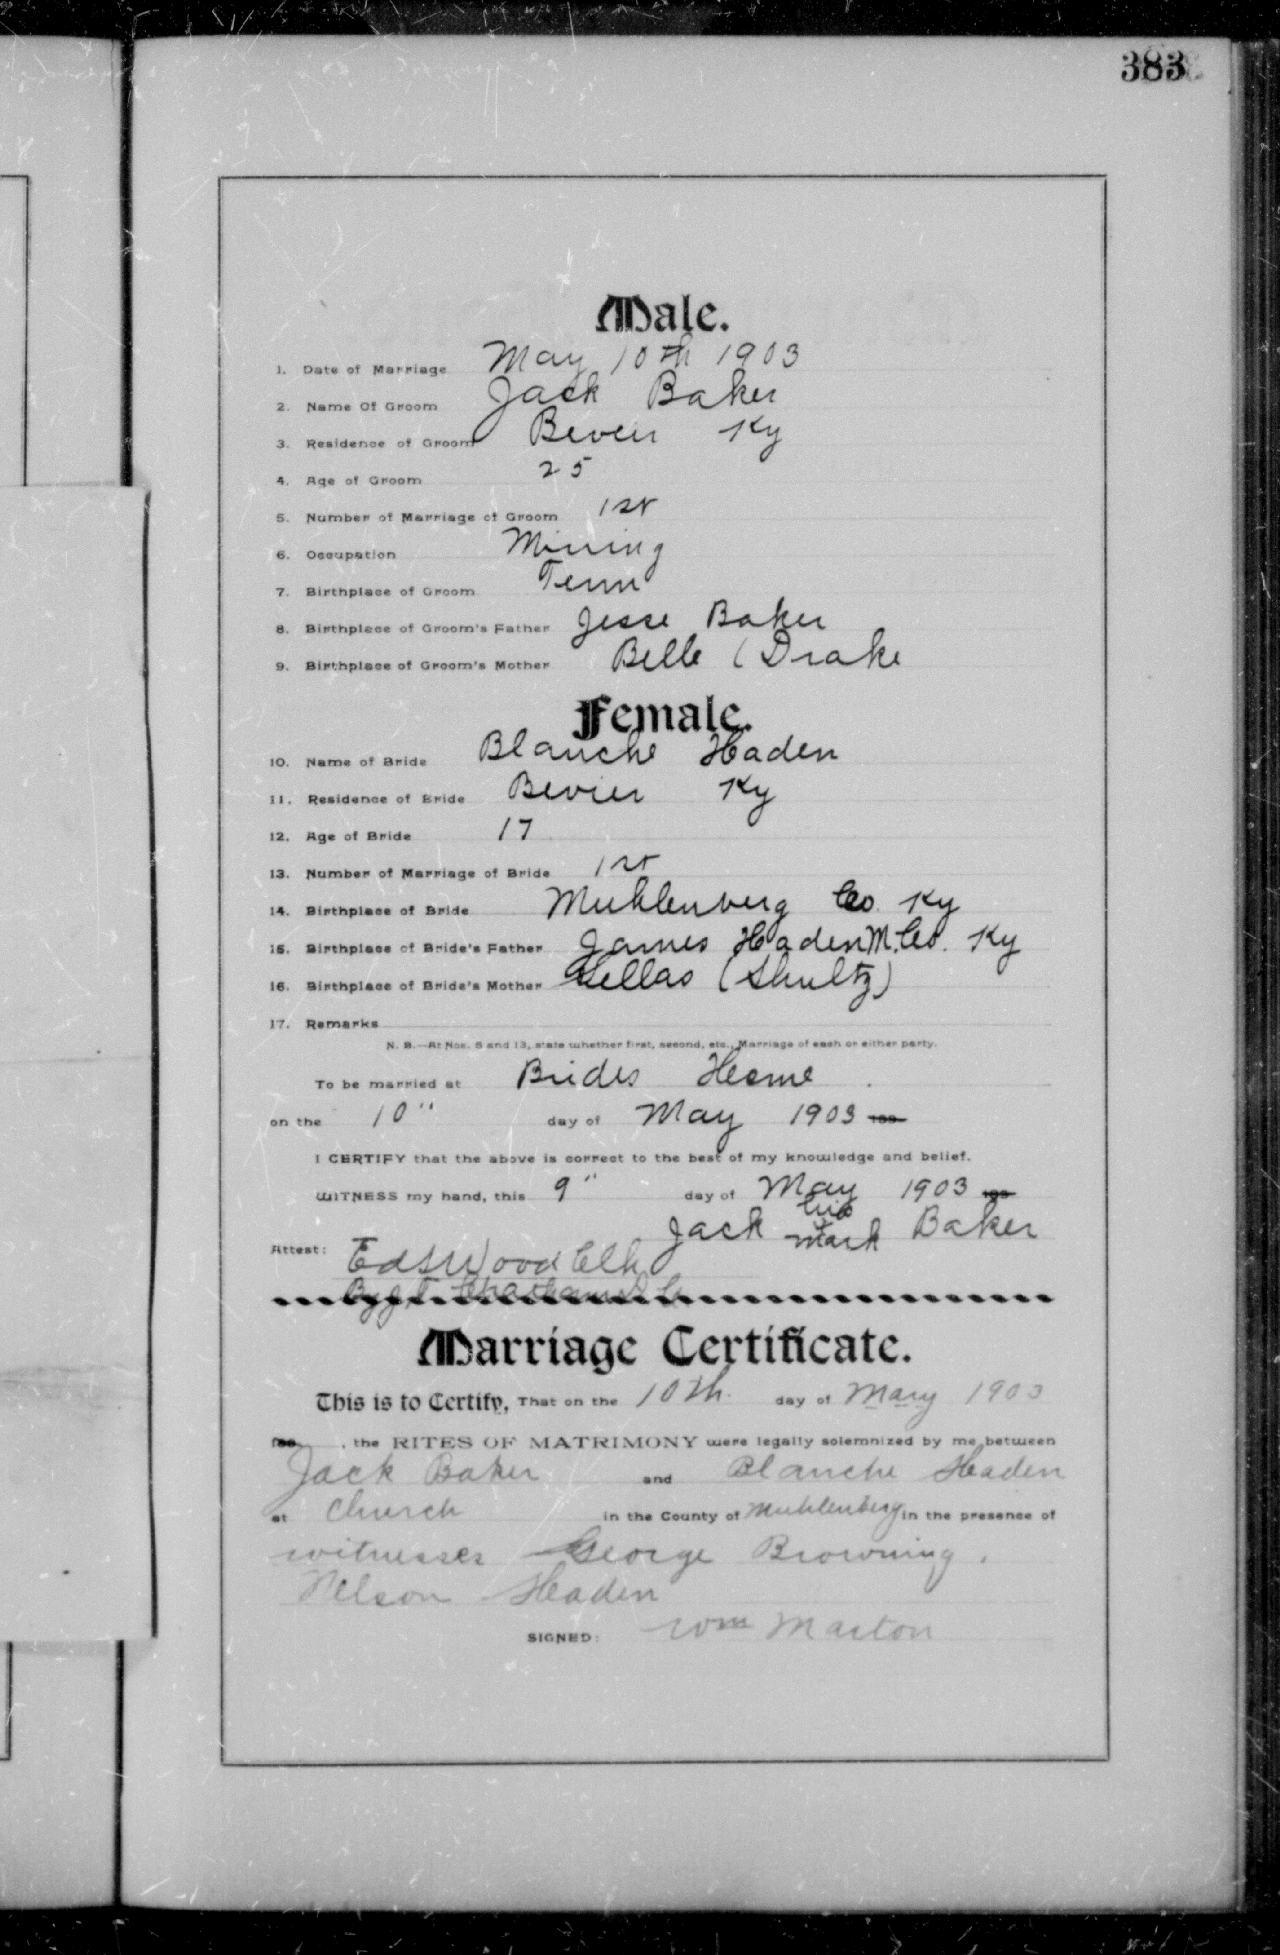 383
Male.
1. Date of Marriage May 10th 1903
2. Name Of Groom Jack Baker
3. Residence of Groom Bevier Ky
4. Age of Groom 25
5. Number of Marriage of Groom 1st
6. Occupation Mining
7. Birthplace of Groom Tenn
8. Birthplace of Groom's Father Jesse Baker
9. Birthplace of Groom's Mother Belle (Drake
Female.
10. Name of Bride Blanche Haden
11. Residence of Bride Bevier Ky
12. Age of Bride 17
13. Number of Marriage of Bride 1st
14. Birthplace of Bride Muhlenberg Co. Ky
15. Birthplace of Bride's Father James Haden M. Co. Ky
16. Birthplace of Bride's Mother (Shultz)
17. Remarks
N. B.—At Nos. 5 and 13, state whether first, second, etc., Marriage of each or either party.
To be married at Brides Home
on the 10" day of May 1903
I CERTIFY that the above is correct to the best of my knowledge and belief.
WITNESS my hand, this 9" day of May 1903
Jack his x mark Baker
Attest: Ed S Wood Clk
By J.T.
Marriage Certificate.
This is to Certify, That on the 10th day of May 1903
, the RITES OF MATRIMONY were legally solemnized by me between
Jack Baker and Blanche Haden
at Church in the County of Muhlenberg in the presence of
witnesses George Browning.
Nelson Haden
SIGNED: Wm Marton